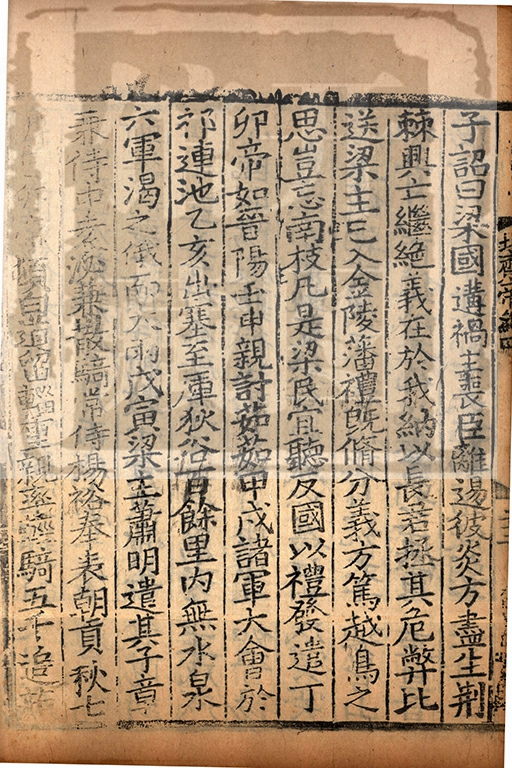 子詔曰梁國遘禍主喪臣離逷彼炎方盡生荆
棘興亡繼絕義在於我納以長君拯其危弊比
送梁主已入金陵藩禮既脩分義方篤越鳥之
思豈忘南枝凡是梁民宜聽反國以禮發遣丁
卯帝如晉陽壬申親討茹茹甲戌諸軍大會於
祁連池乙亥出塞至庫狄谷百餘里内無水泉
六軍渴乏俄而大雨戊寅梁主蕭明遣其子章
兼侍中袁泌兼散騎常侍楊裕奉表朝貢秋七
頓白道留輜重親率輕騎五千追茹